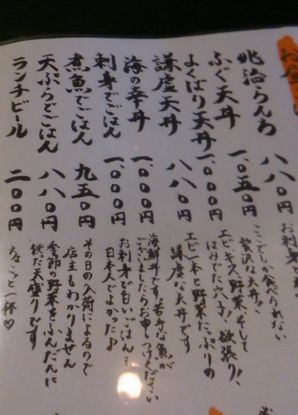 兆治らんち 八八〇円
ふぐ天丼 一、〇五〇円
ここでしか食べられない
贅沢な天丼!
よくばり天丼 一、〇〇〇円
エビ、キス、野菜、そして
はみでたアナゴ!欲張り!
謙虚天丼 八八〇円
エビ一本と野菜たっぷりの
謙虚な天丼です
海の幸丼 一、〇〇〇円
海鮮丼です。苦手な魚が
ございましたらお申しつけください
刺身でごはん 一、〇〇〇円
お刺身で白いごはん…
日本人でよかった♪
煮魚でごはん 九五〇円
その日の入荷によるので
店主もわかりません
天ぷらでごはん 八八〇円
季節の野菜をふんだんに
使た天盛りです
ランチビール 二〇〇円
ちょこっと一杯♡